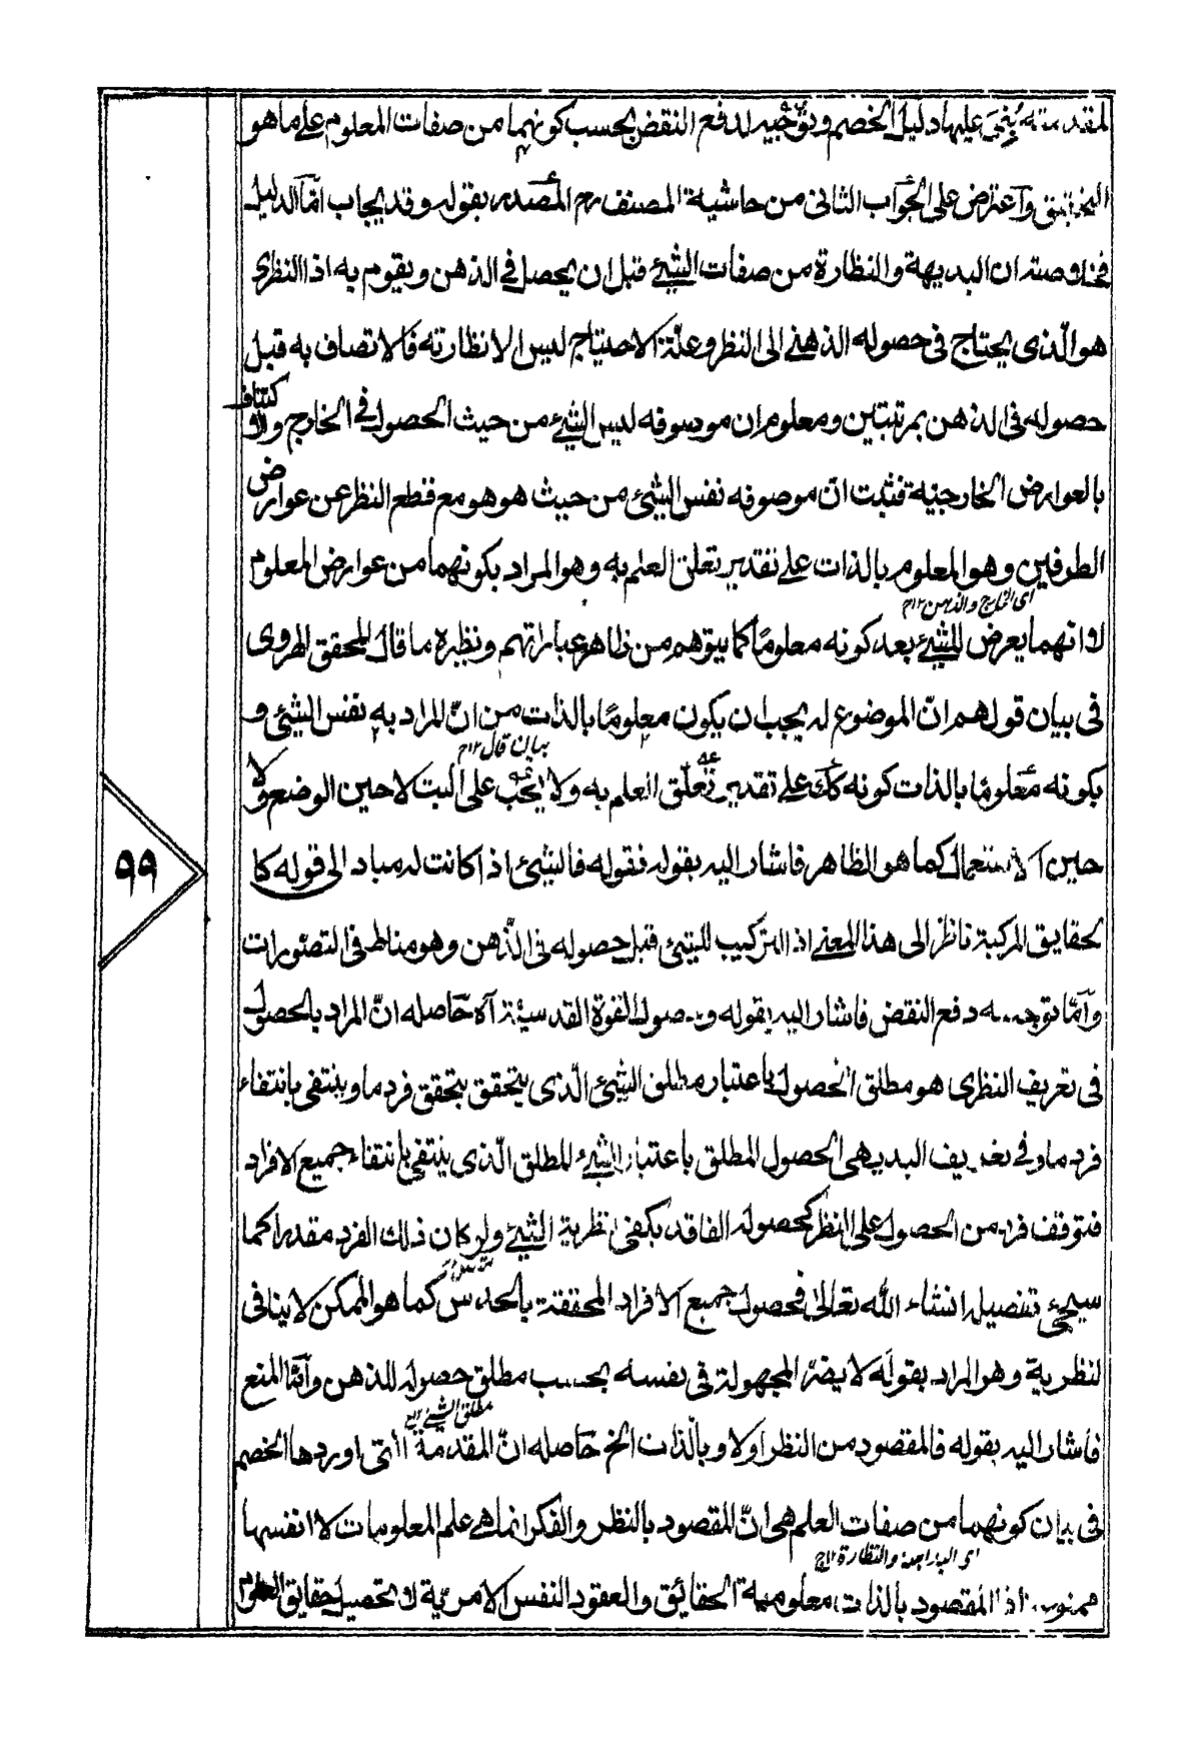 لمقدمته يبنى عليها دليل الخصم وتوجيه لدفع النقض بحسب كونهما من صفات المعلوم على ما هو
التحقيق واعترض على الجواب الثانى من حاشية المصنف رم المصدر بقوله وقد يجاب امّا الدليل
ان البديهة والنظارة من صفات الشئ قبل ان يحصل فى الذهن ويقوم به اذا النظرى
هو الّذى يحتاج فى حصوله الذهنى الى النظر وعلّة الاحتياج ليس الا نظارته فالاتصاف به قبل
حصوله فى الذهن بمرتبتين ومعلوم ان موصوفه ليس الشئ من حيث الحصول فى الخارج و اكتناف
بالعوارض الخارجية فثبت انّ موصوفه نفس الشئ من حيث هو هو مع قطع النظر عن عوارض
الطرفين وهو المعلوم بالذات على تقدير تعلق العلم به وهو المراد بكونهما من عوارض المعلوم
اى الخارج والذهن ١٢م
لا انهما يعرض للشئ بعد كونه معلومًا كما يتوهم من ظاهر عباراتهم ونظيره ما قال المحقق الهروى
فى بيان قولهم انّ الموضوع له يجب ان يكون معلومًا بالذات من انّ المراد به نفس الشئ و
بيان قال ١٢م
بكونه معلومًا بالذات كونه كك على تقدير تعلّق العلم به ولا يجب على البت لا حين الوضع ولا
حين الاستعمال كما هو الظاهر فاشار اليه بقوله فقوله فالشئ اذا كانت له مباد الى قوله كا
لحقايق المركبة ناظر الى هذا المعنى اذ التركيب للشئ قبل حصوله فى الذّهن وهو مناط فى التصوّرات
وامّا توجيه دفع النقض فاشار اليه بقوله وحصول القوة القدسيّة آه حاصله انّ المراد بالحصول
فى تعريف النظرى هو مطلق الحصول باعتبار مطلق الشئ الّذى يتحقق بتحقق فرد ما وينتفى بانتفاء
فرد ما وفى تعريف البديهى الحصول المطلق باعتبار الشئ المطلق الّذى ينتفى بانتفاء جميع الافراد
فتوقف فرد من الحصول على النظر كحصوله الفاقد يكفى نظرية الشئ ولو كان ذلك الفرد مقدرا كما
سيجئ تفصيله انشاء الله تعالى فحصول جميع الافراد المحققة بالحدس كما هو الممكن لا ينافى
لنظرية وهو المراد بقوله لا يضرّ المجهولة فى نفسه بحسب مطلق حصوله للذهن وامّا المنع
مطلق الشئ ١٢
فاشار اليه بقوله فالمقصود من النظر اولا وبالّذات الخ حاصله انّ المقدمة التى اوردها الخصم
فى بيان كونهما من صفات العلم هى انّ المقصود بالنظر والفكر انما هى علم المعلومات لا انفسها
اى البداهة والنظارة ١٢ج
اذ المقصود بالذات معلومية الحقائق والعقود النفس الامريّة تحصيل حقايق العلوم
٩٩